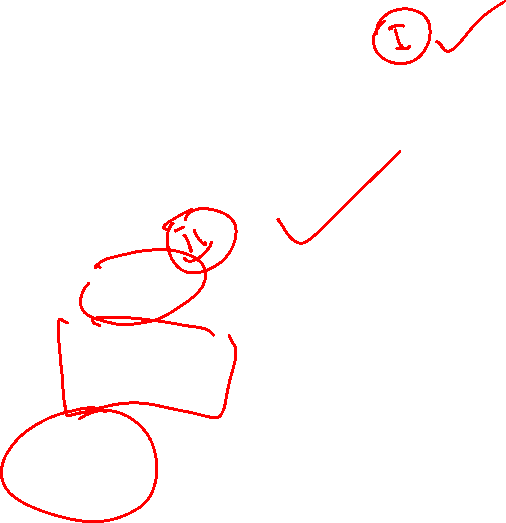 I
II